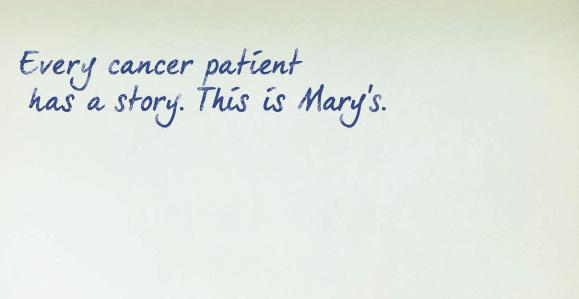 Every cancer patient
has a story. This is Mary's.